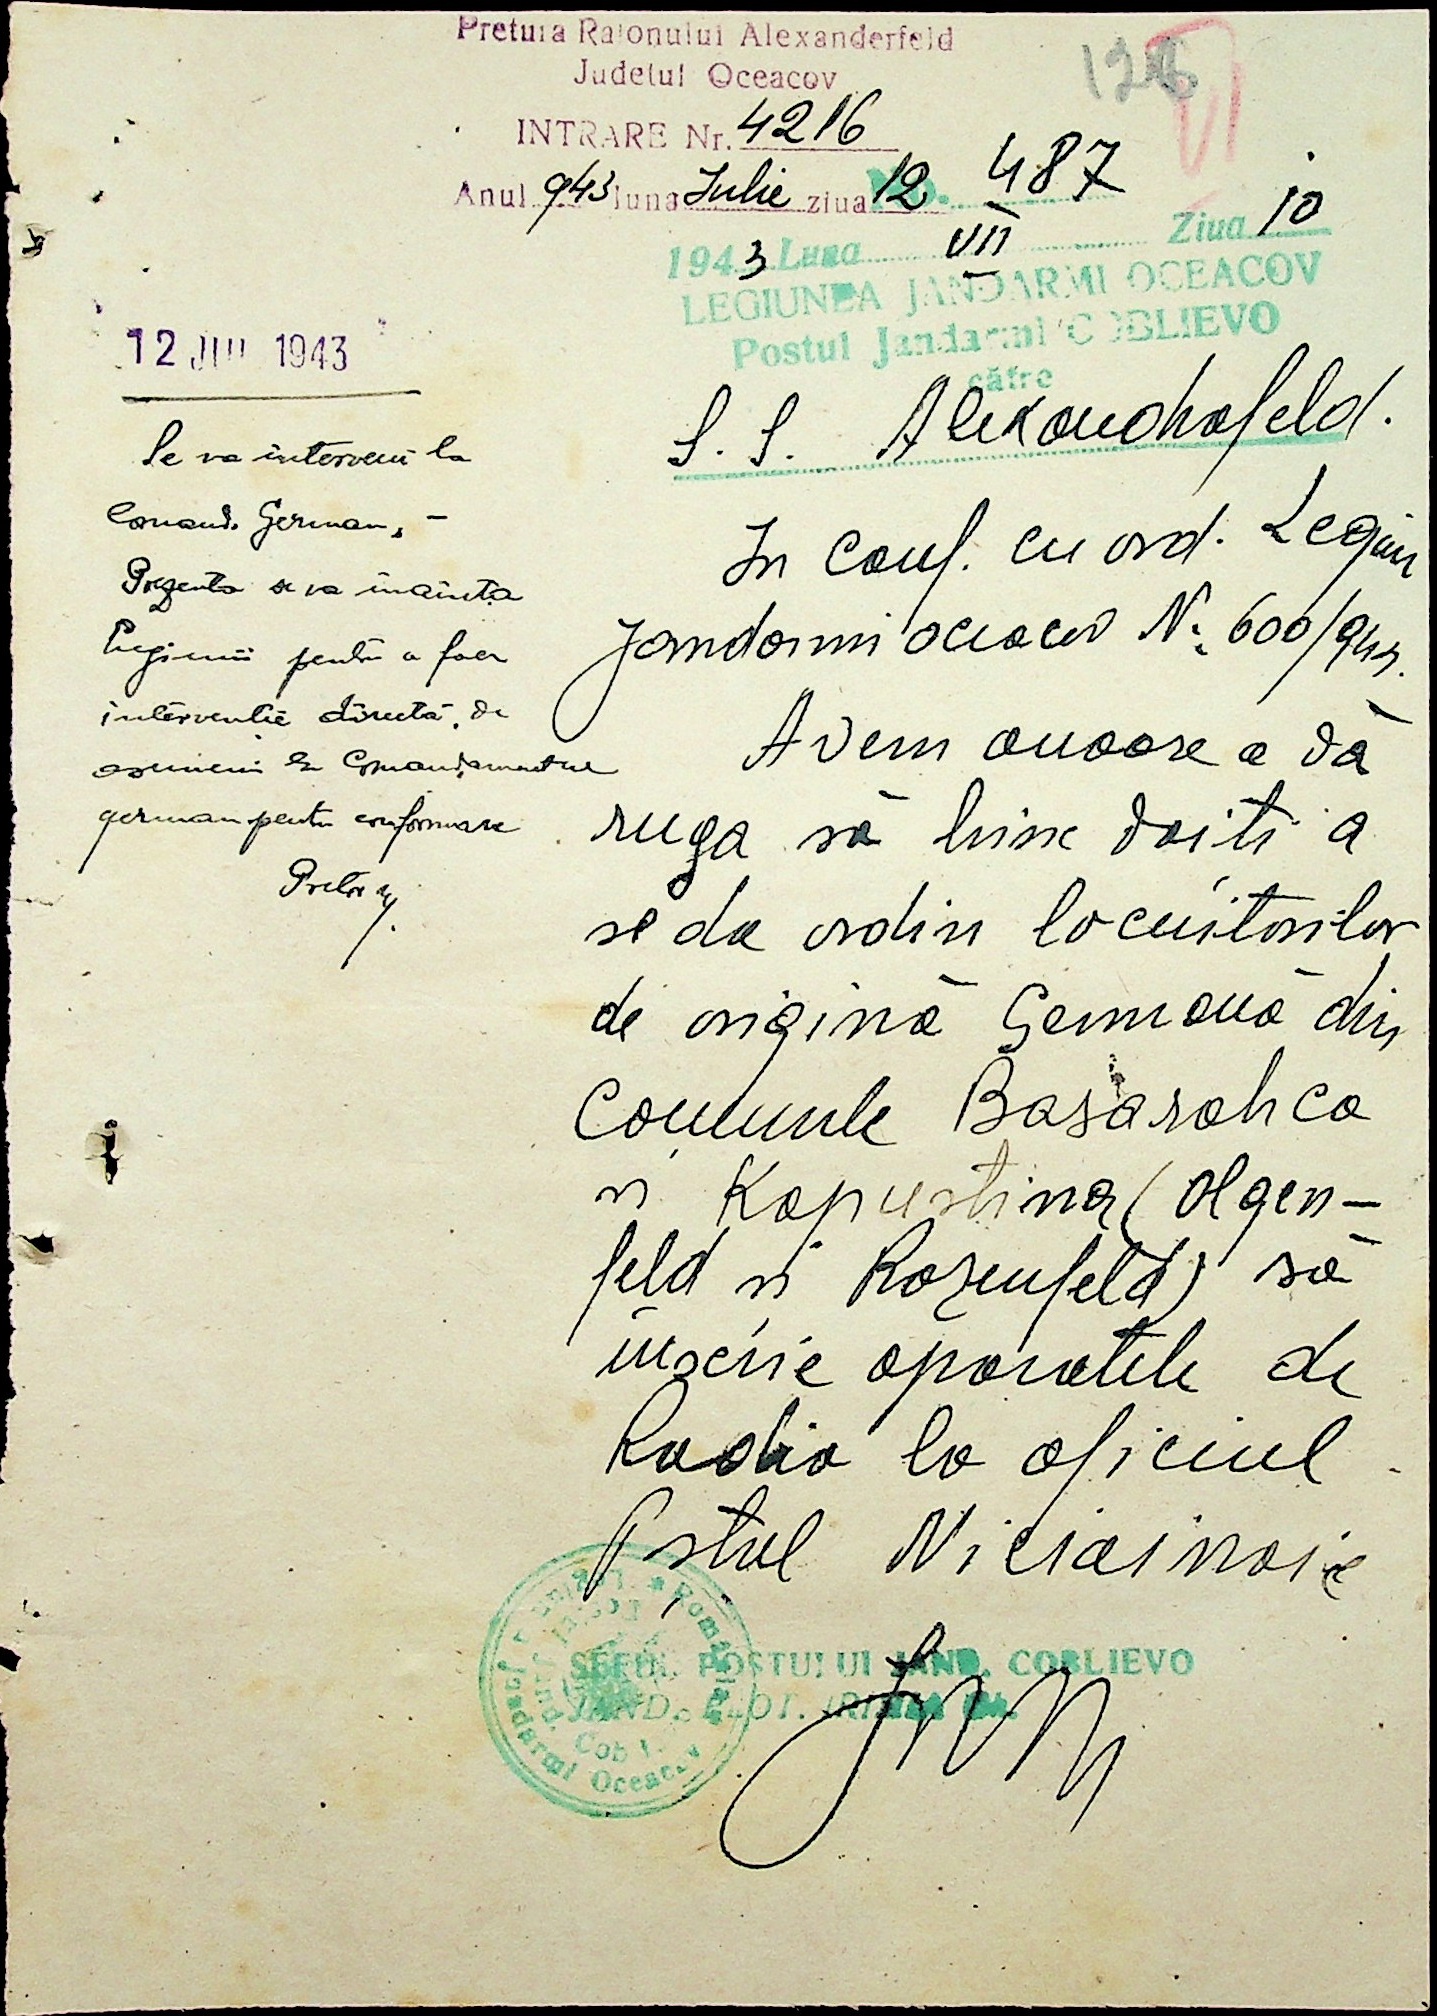 Pretura Raionului Alexanderfeld
Judetul Oceacov
126
INTRARE Nr. 4216
Anul 943 luna Iulie ziua 12
No. 487
1943 Luna VII Ziua 10
LEGIUNEA JANDARMI OCEACOV
Postul Jandarmi COBLIEVO
către
S. S. Alexandrofeld.
12 JUL 1943
Se va interveni la
Comand. German, –
Prezenta se va înainta
Legiunii pentru a face
intervenție directă, de
asemeni la Comandamentul
german pentru conformare
Pretor
In conf. cu ord. Legiun
Jandarmi Oceacov No 600/943.
Avem onoare a vă
ruga să bine voiti a
se da ordin locuitorilor
de origină Germană din
Comunele Basarabca
si Kapustina (Olgen-
feld si Rozenfeld) să
înscrie aparatele de
Radio la oficiul
Pstul
SEFUL POSTULUI JAND. COBLIEVO
JAND. PLOT.
România
Jandarmi Oceacov